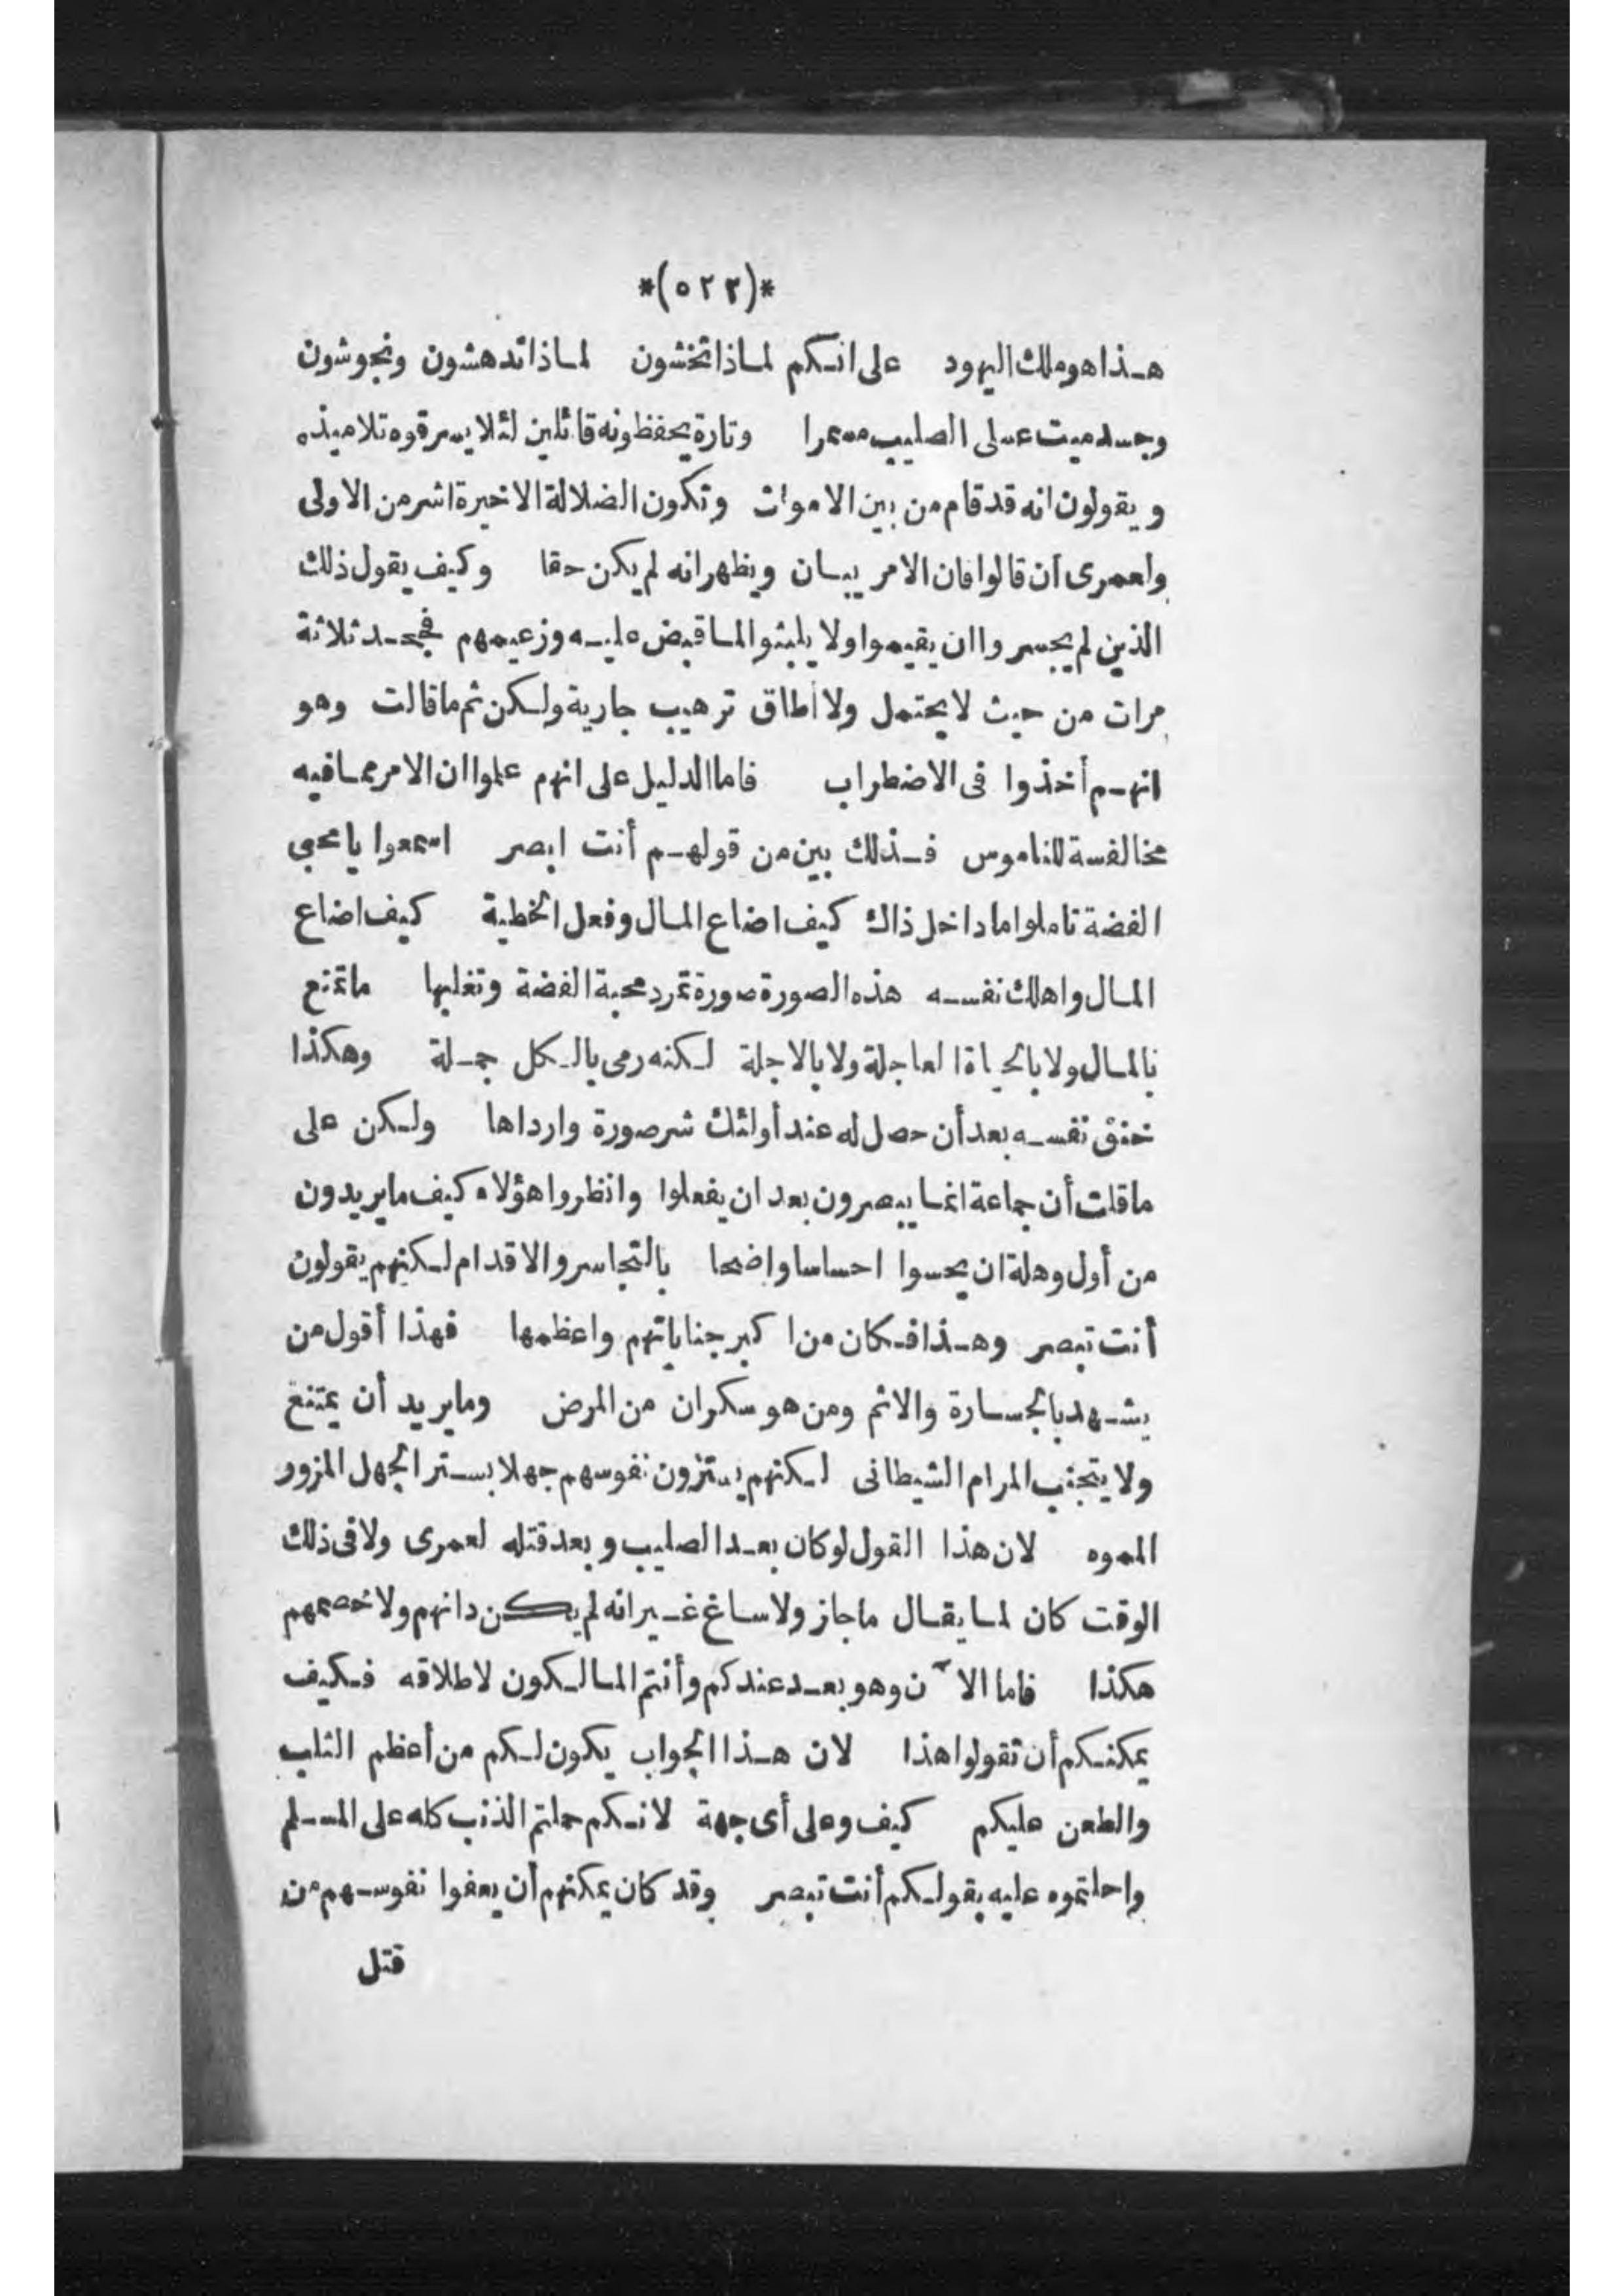 *(٥٢٢)*
هذا هو ملك اليهود على انكم لماذا تخشون لماذا تدهشون وتجوشون
وجسد ميت على الصليب مسمرا وتارة يحفظونه قائلين لئلا يسرقوه تلاميذه
ويقولون انه قد قام من بين الاموات وتكون الضلالة الاخيرة اشر من الاولى
ولعمرى ان قالوا فان الامر يبان ويظهر انه لم يكن حقا وكيف يقول ذلك
الذين لم يجسروا ان يقيموا ولا يلبثوا لما قبض عليه وزعيمهم فجحد ثلاثة
مرات من حيث لا يحتمل ولا أطاق ترهيب جارية ولكن ثم ما قالت وهو
انهم أخذوا فى الاضطراب فاما الدليل على انهم علموا ان الامر مما فيه
مخالفسة للناموس فذلك بين من قولهم أنت ابصر اسمعوا يا محبى
الفضة تاملوا ما داخل ذاك كيف اضاع المال وفعل الخطية كيف اضاع
المال واهلك نفسه هذه الصورة صورة تمرد محبة الفضة وتغلبها ما تمتع
بالمال ولا بالحياة العاجلة ولا بالاجلة لكنه رمى بالكل جملة وهكذا
خنق نفسه بعد أن حصل له عند أولئك شر صورة وارداها ولكن على
ما قلت أن جماعة انما يبصرون بعد ان يفعلوا وانظروا هؤلاء كيف ما يريدون
من أول وهلة ان يحسوا احساسا واضحا بالتجاسر والاقدام لكنهم يقولون
أنت تبصر وهذا فكان من اكبر جناياتهم واعظمها فهذا أقول من
يشهد بالجسارة والاثم ومن هو سكران من المرض وما يريد أن يمتنع
ولا يتجنب المرام الشيطانى لكنهم يسترون نفوسهم جهلا بستر الجهل المزور
المموه لان هذا القول لو كان بعد الصليب وبعد قتله لعمرى ولا فى ذلك
الوقت كان لما يقال ما جاز ولا ساغ غير انه لم يكن دانهم ولا خصمهم
هكذا فاما الآن وهو بعد عندكم وأنتم المالكون لاطلاقه فكيف
يمكنكم أن تقولوا هذا لان هذا الجواب يكون لكم من أعظم الثلب
والطعن عليكم كيف وعلى أى جهة لانكم حملتم الذنب كله على المسلم
واحلتموه عليه بقولكم أنت تبصر وقد كان يمكنهم أن يعفوا نفوسهم من
قتل